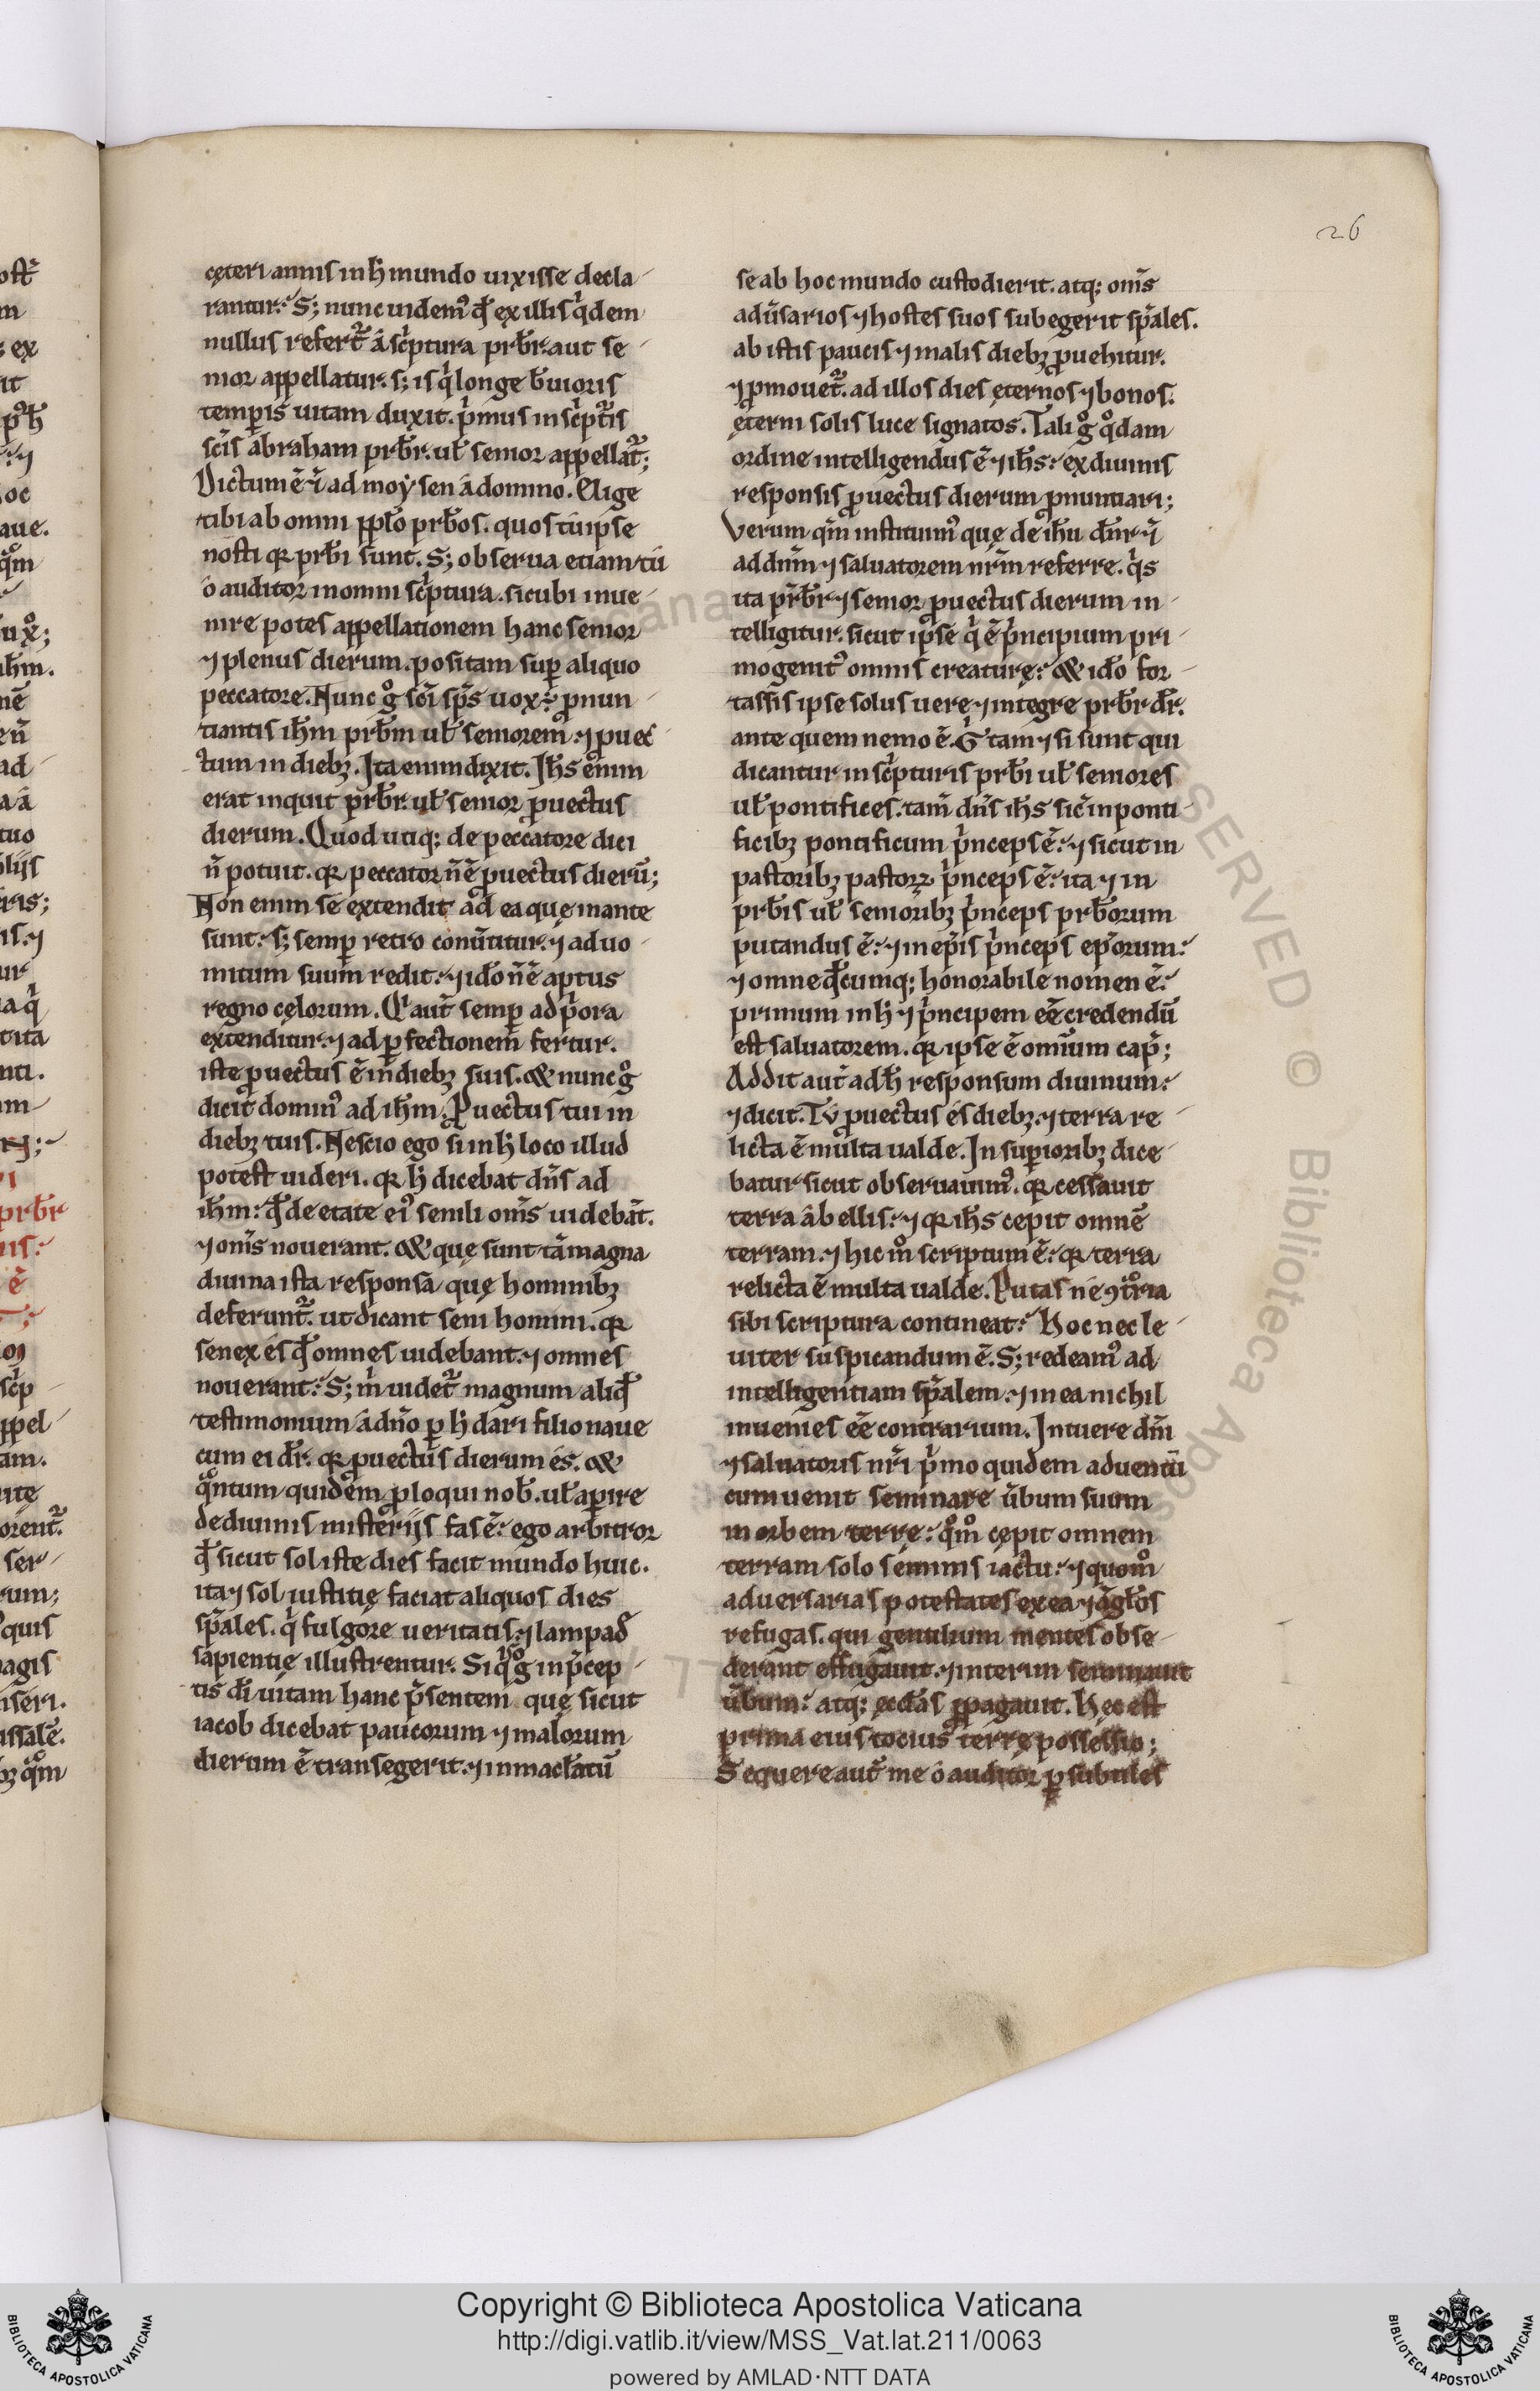 26
cęteri annis in h̄ mundo uixisse decla-
rantur:̓ S; nunc uidem᾽ qđ ex illis q̇dem
nullus refert᷑ á sc̓ptura prƀr. aut se-
nior appellatur. s; is q̇ longe ƀuioris
temporis uitam duxit. p̓mus in sc̓pt᷑is
sc̄is abraham prƀr. uł senior appellat᷑;
Dictum ē ⁊ ad moẏsen á domino. Elige
tibi ab omni ꝓp̄lo prƀos. quos tú ipse
nosti qr prƀi sunt. S; obserua etiam tú
ó auditor in omni sc̓ptura. sicubi inue-
nire potes appellationem hanc senior
⁊ plenus dierum. positam suꝑ aliquo
peccatore. Nunc g̊ sc̄i sp̄s uox:̓ ꝓnun-
tiantis ih̄m prƀm uł seniorem:̓ ⁊ ꝓuec-
tum in dieb; . Ita enim dixit. Ih̄s enim
erat inquit prƀr. uł senior ꝓuectus
dierum. Quod utiq; de peccatore dici
n̄ potuit. qr peccator n̄ ē ꝓuectus dierū;
Non enim se extendit ad ea quę in ante
sunt:̓ s; semꝑ retro conūtitur. ⁊ ad uo-
mitum suum redit:̓ ⁊ ido n̄ ē aptus
regno cęlorum. Q̇ aut̄ semꝑ ad p̓ora
extenditur:̓ ⁊ ad ꝑfectionem fertur.
iste ꝓuectus ē in dieb; suis. & nunc g̊
dicit domin᾽ ad ih̄m. Ꝓuectus tu in
dieb; tuis. Nescio ego si in h̄ loco illud
potest uideri. qr h̄ dicebat dn̄s ad
ih̄m:̓ qđ de etate ei᾽ senili om̄s uidebāt.
⁊ om̄s nouerant. & quę sunt tā magna
diuina ista responsa quę hominib;
deferunt᷑. ut dicant seni homini. qr
senex és qđ omnes uidebant. ⁊ omnes
nouerant:̓ S; m̓ uidet᷑ magnum aliqđ
testimonium á dn̄o ꝑ h̄ dari filio naue
cum ei dr̄. qr ꝓuectus dierum és. &
q̊ntum quidem ꝓloqui nob̄. uł aꝑire
de diuinis misterijs fas ē:̓ ego arbitror
qđ sicut sol iste dies facit mundo huic.
ita ⁊ sol iustitię faciat aliquos dies
sp̄ales. q̇ fulgore ueritatis. ⁊ lampad̄
sapientię illustrentur. Siq̓s g̊ in p̄cep-
tis dī uitam hanc p̄sentem quę sicut
iacob dicebat paucorum ⁊ malorum
dierum ē transegerit. ⁊ inmacłatū
se ab hoc mundo custodierit. atq; om̄s
adūsarios ⁊ hostes suos subegerit sp̄ales.
ab istis paucis ⁊ malis dieb; ꝓuehitur.
⁊ ꝓmouet᷑. ad illos dies ęternos ⁊ bonos.
ęterni solis luce signatos. Tali g̊ q̊dam
ordine intelligendus ē ⁊ ih̄s:̓ ex diuinis
responsis ꝓuectus dierum ꝓnuntiari;
Verum qm̄ instituim᾽ quę de ih̄u dn̄r ⁊
ad dn̄m ⁊ saluatorem nr̄m referre. q̓s
ita prƀr ⁊ senior ꝓuectus dierum in-
telligitur. sicut ipse q̇ ē p̓ncipium pri-
mogenit᾽ omnis creaturę:̓ & ido for-
tassis ipse solus uere ⁊ integre prƀr dr̄.
ante quem nemo ē. G̓ tam ⁊ si sunt qui
dicantur in sc̓pturis prƀi uł seniores
uł pontifices. tam̄ dn̄s ih̄s sic̄ in ponti-
ficib; pontificum p̓nceps ē:̓ ⁊ sicut in
pastorib; pastorꝝ p̓nceps ē:̓ ita ⁊ in
prƀis uł seniorib; p̓nceps prƀorum
putandus ē:̓ ⁊ in ep̄is p̓nceps ep̄orum:̓
⁊ omne qđcumq; honorabile nomen ē:̓
primum in h̄ ⁊ p̓ncipem eē credendū
est saluatorem. qr ipse ē omīum cap̄;
Addit aut̄ ad h̄ responsum diuinum:̓
⁊ dicit. Tú ꝓuectus és dieb; . ⁊ terra re-
licta ē multa ualde. In suꝑiorib; dice-
batur sicut obseruauim᾽. qr cessauit
terra á bellis:̓ ⁊ qr ih̄s cepit omnē
terram. ⁊ hic m̊ scriptum ē:̓ qr terra
relicta ē multa ualde. Putas ne ꝯt̊ria
sibi scriptura contineat:̓ Hoc nec le-
uiter suspicandum ē. S; redeam᾽ ad
intelligentiam sp̄alem. ⁊ in ea nichil
inuenies eē contrarium. Intuere dn̄i
⁊ saluatoris nr̄i p̓mo quidem aduentū
cum uenit seminare ūbum suum
in orbem terrę:̓ q̊m̊ cępit omnem
terram solo seminis iactu:̓ ⁊ quom̊
aduersarias potestates ex ea ⁊ āgłos
refugas. qui gentilium mentes obse-
derant effugauit. ⁊ interim seminauit
ūbum:̓ atq; ęccłas ꝓpagauit. Hęc est
prima eius tocius terrę possessio;
Sequere aut̄ me ó auditor ꝑ subtiles
Copyright © Biblioteca Apostolica Vaticana
http://digi.vatlib.it/view/MSS_Vat.lat.211/0063
powered by AMLAD·NTT DATA
BIBLIOTECA APOSTOLICA VATICANA
BIBLIOTECA APOSTOLICA VATICANA